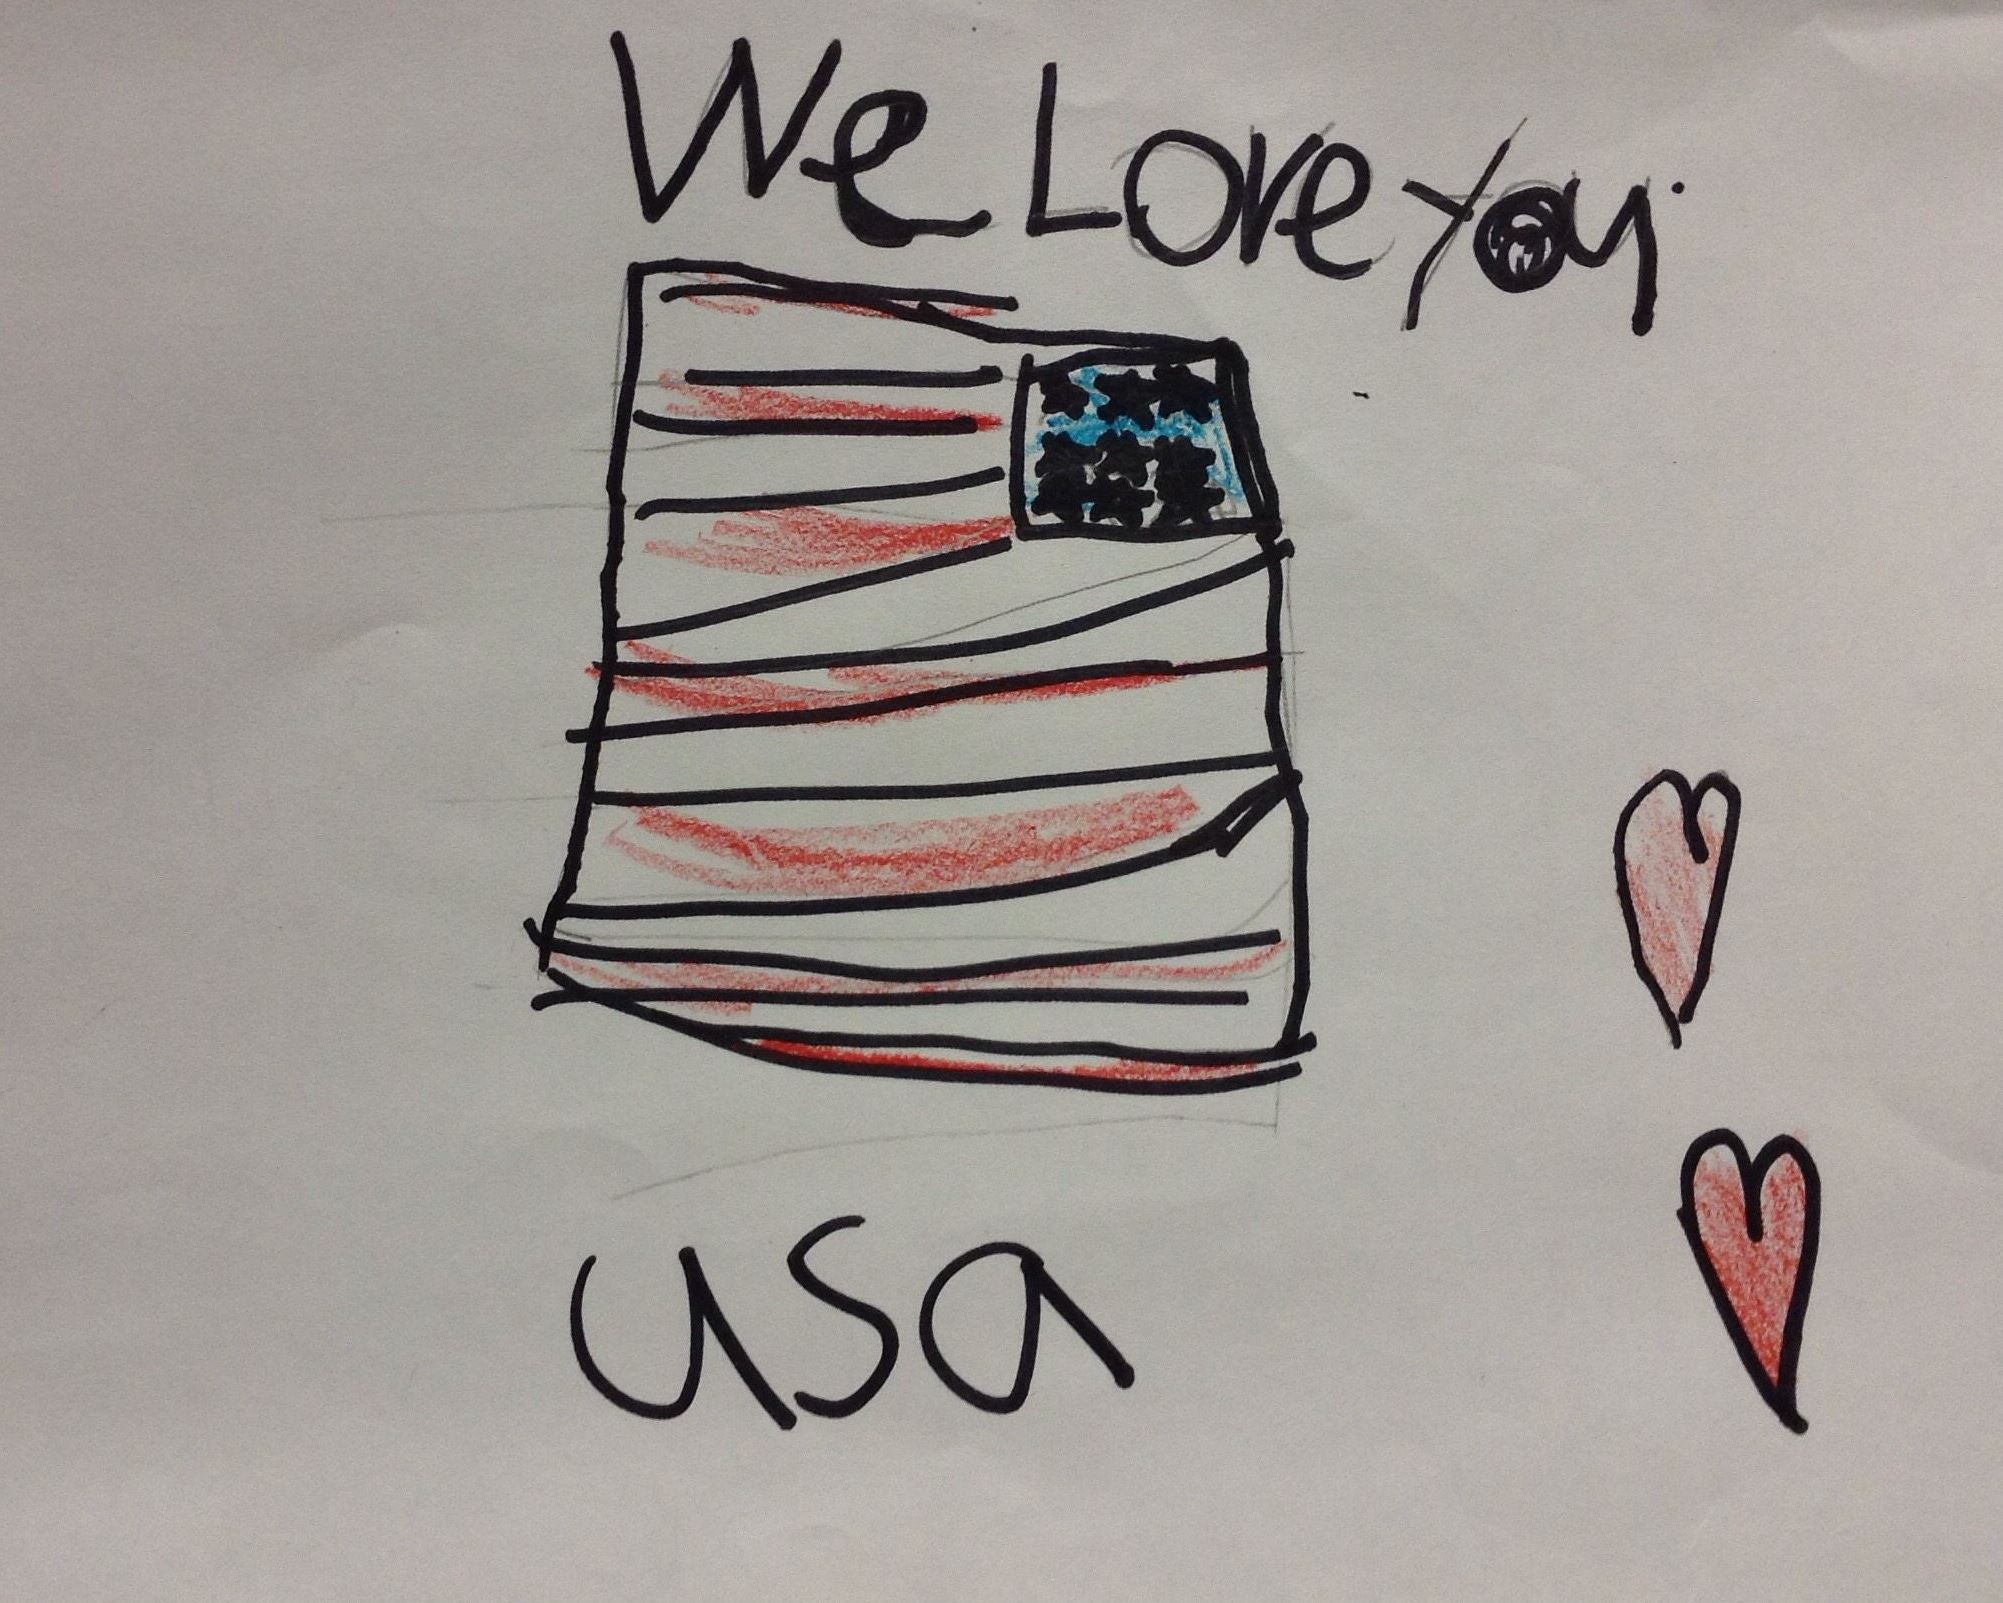 We Love you
usa